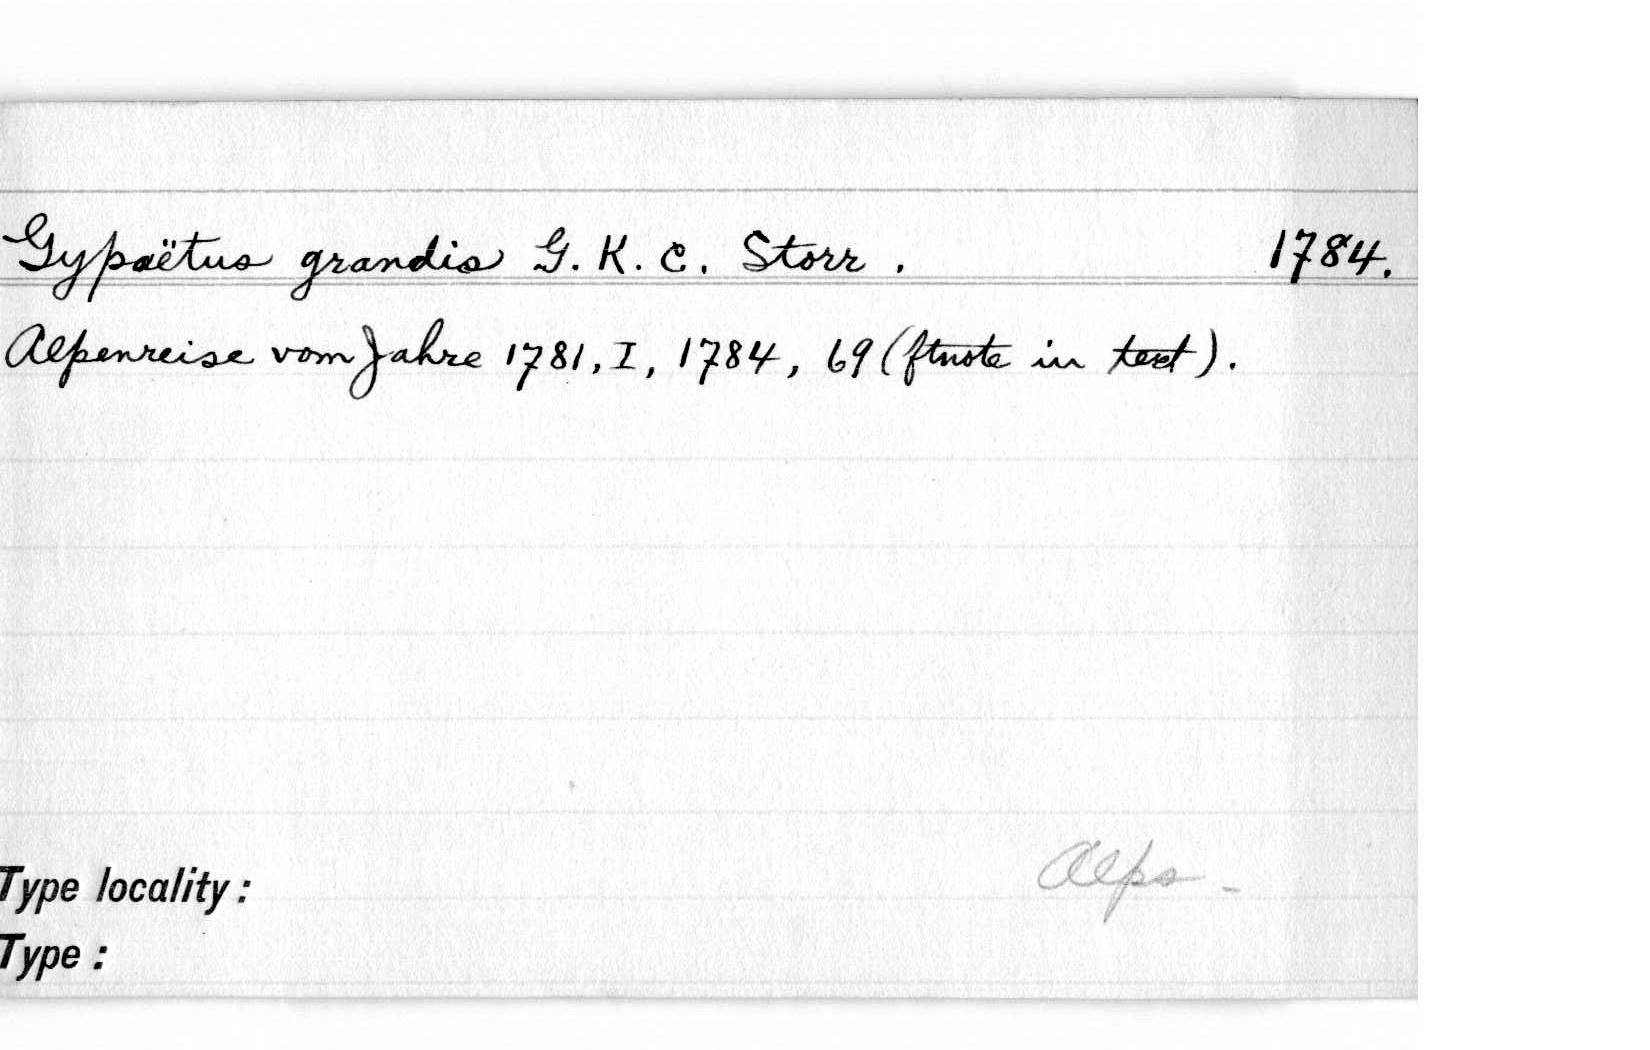 Gypaëtus grandis G. K. C. Storr. 1784.
Alpenreise vom Jahre 1781, I, 1784, 69 (ftnote in text).
Alps -
Type locality:
Type: